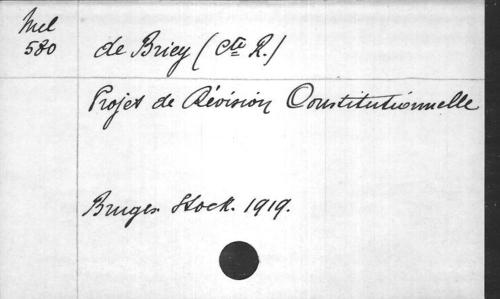 Mel
580
de Briey (Cte R.)
Projet de Révision Constitutionnelle
Bruges. Stock. 1919.